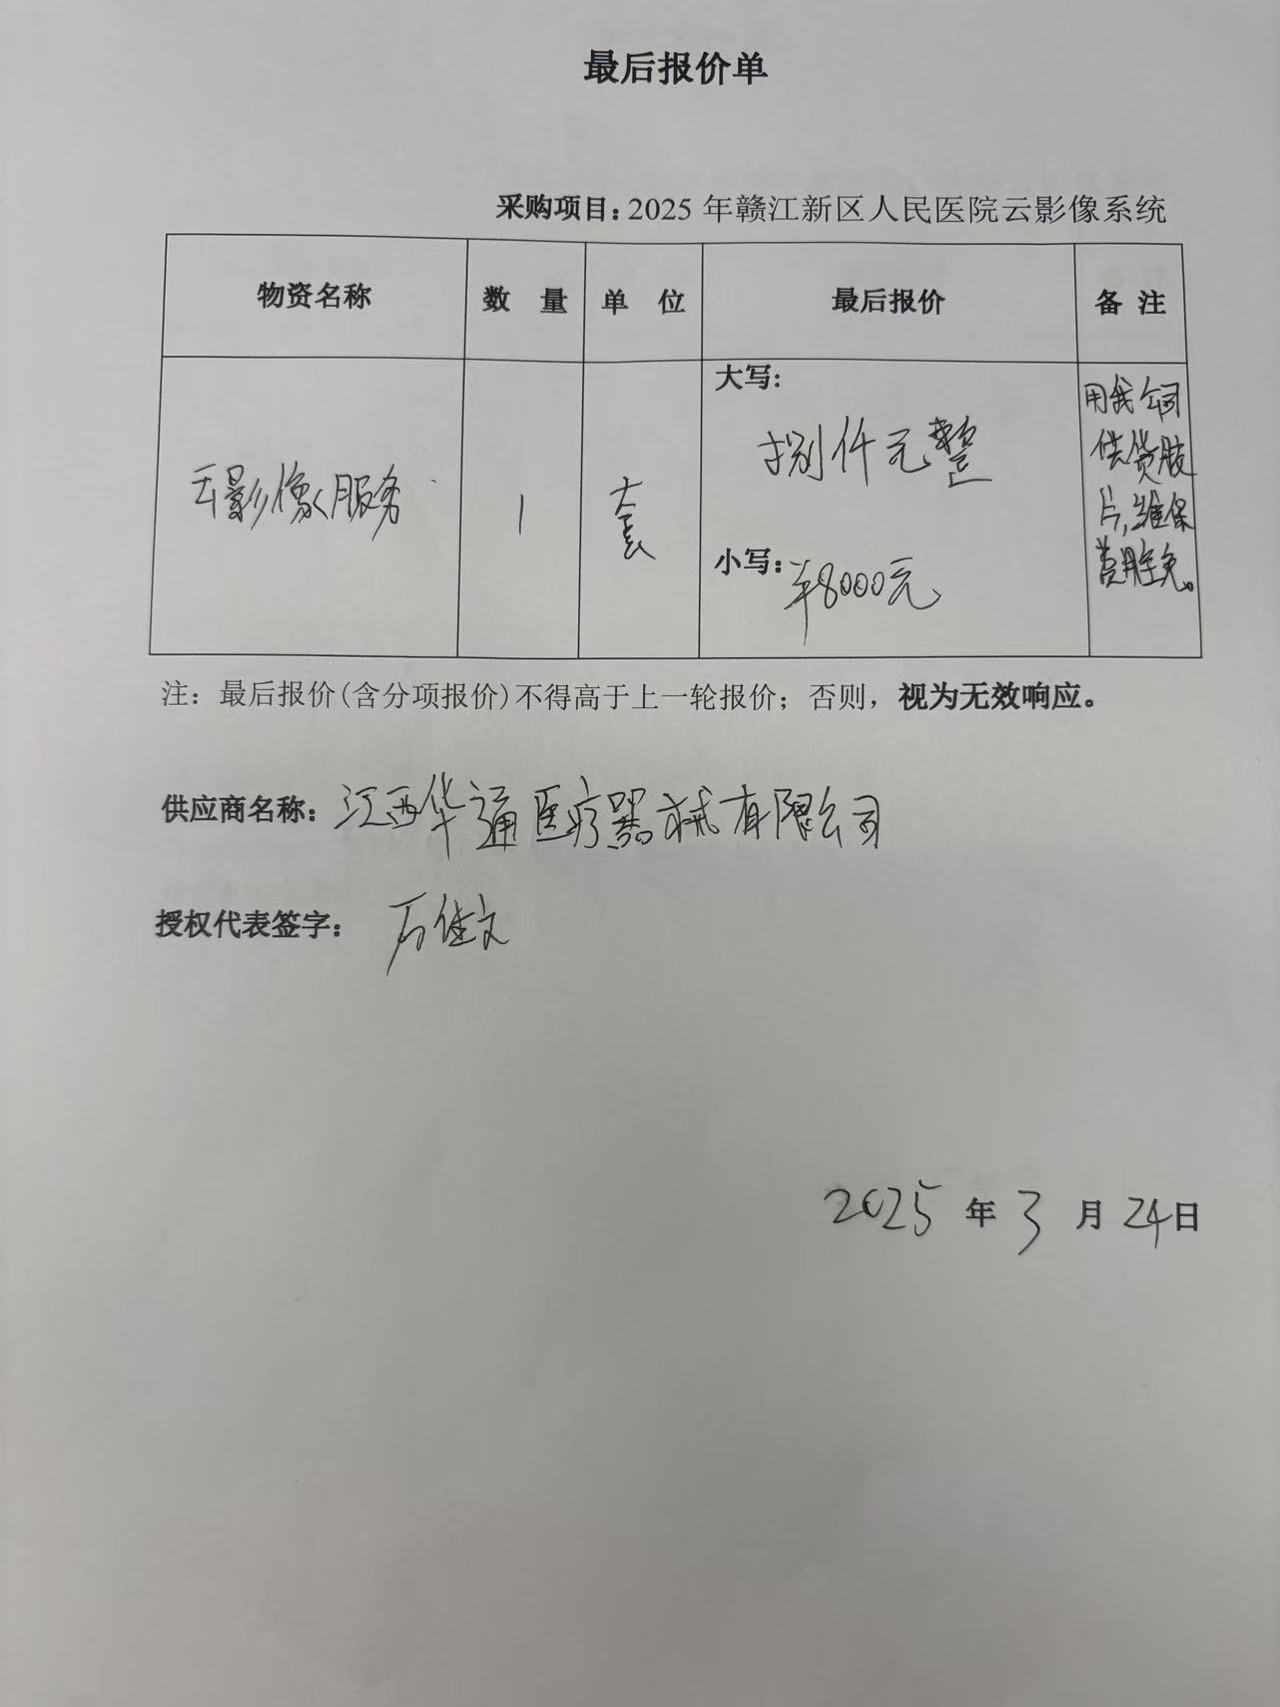 最后报价单
采购项目：2025年赣江新区人民医院云影像系统
物资名称 数 量 单 位 最后报价 备 注
云影像服务 1 套
大写：
捌仟元整
小写：¥8000元
用我公司
供货胶
片，维保
费用全免。
注：最后报价(含分项报价)不得高于上一轮报价；否则，视为无效响应。
供应商名称：江西华通医疗器械有限公司
授权代表签字：石佳文
2025 年 3 月 24日